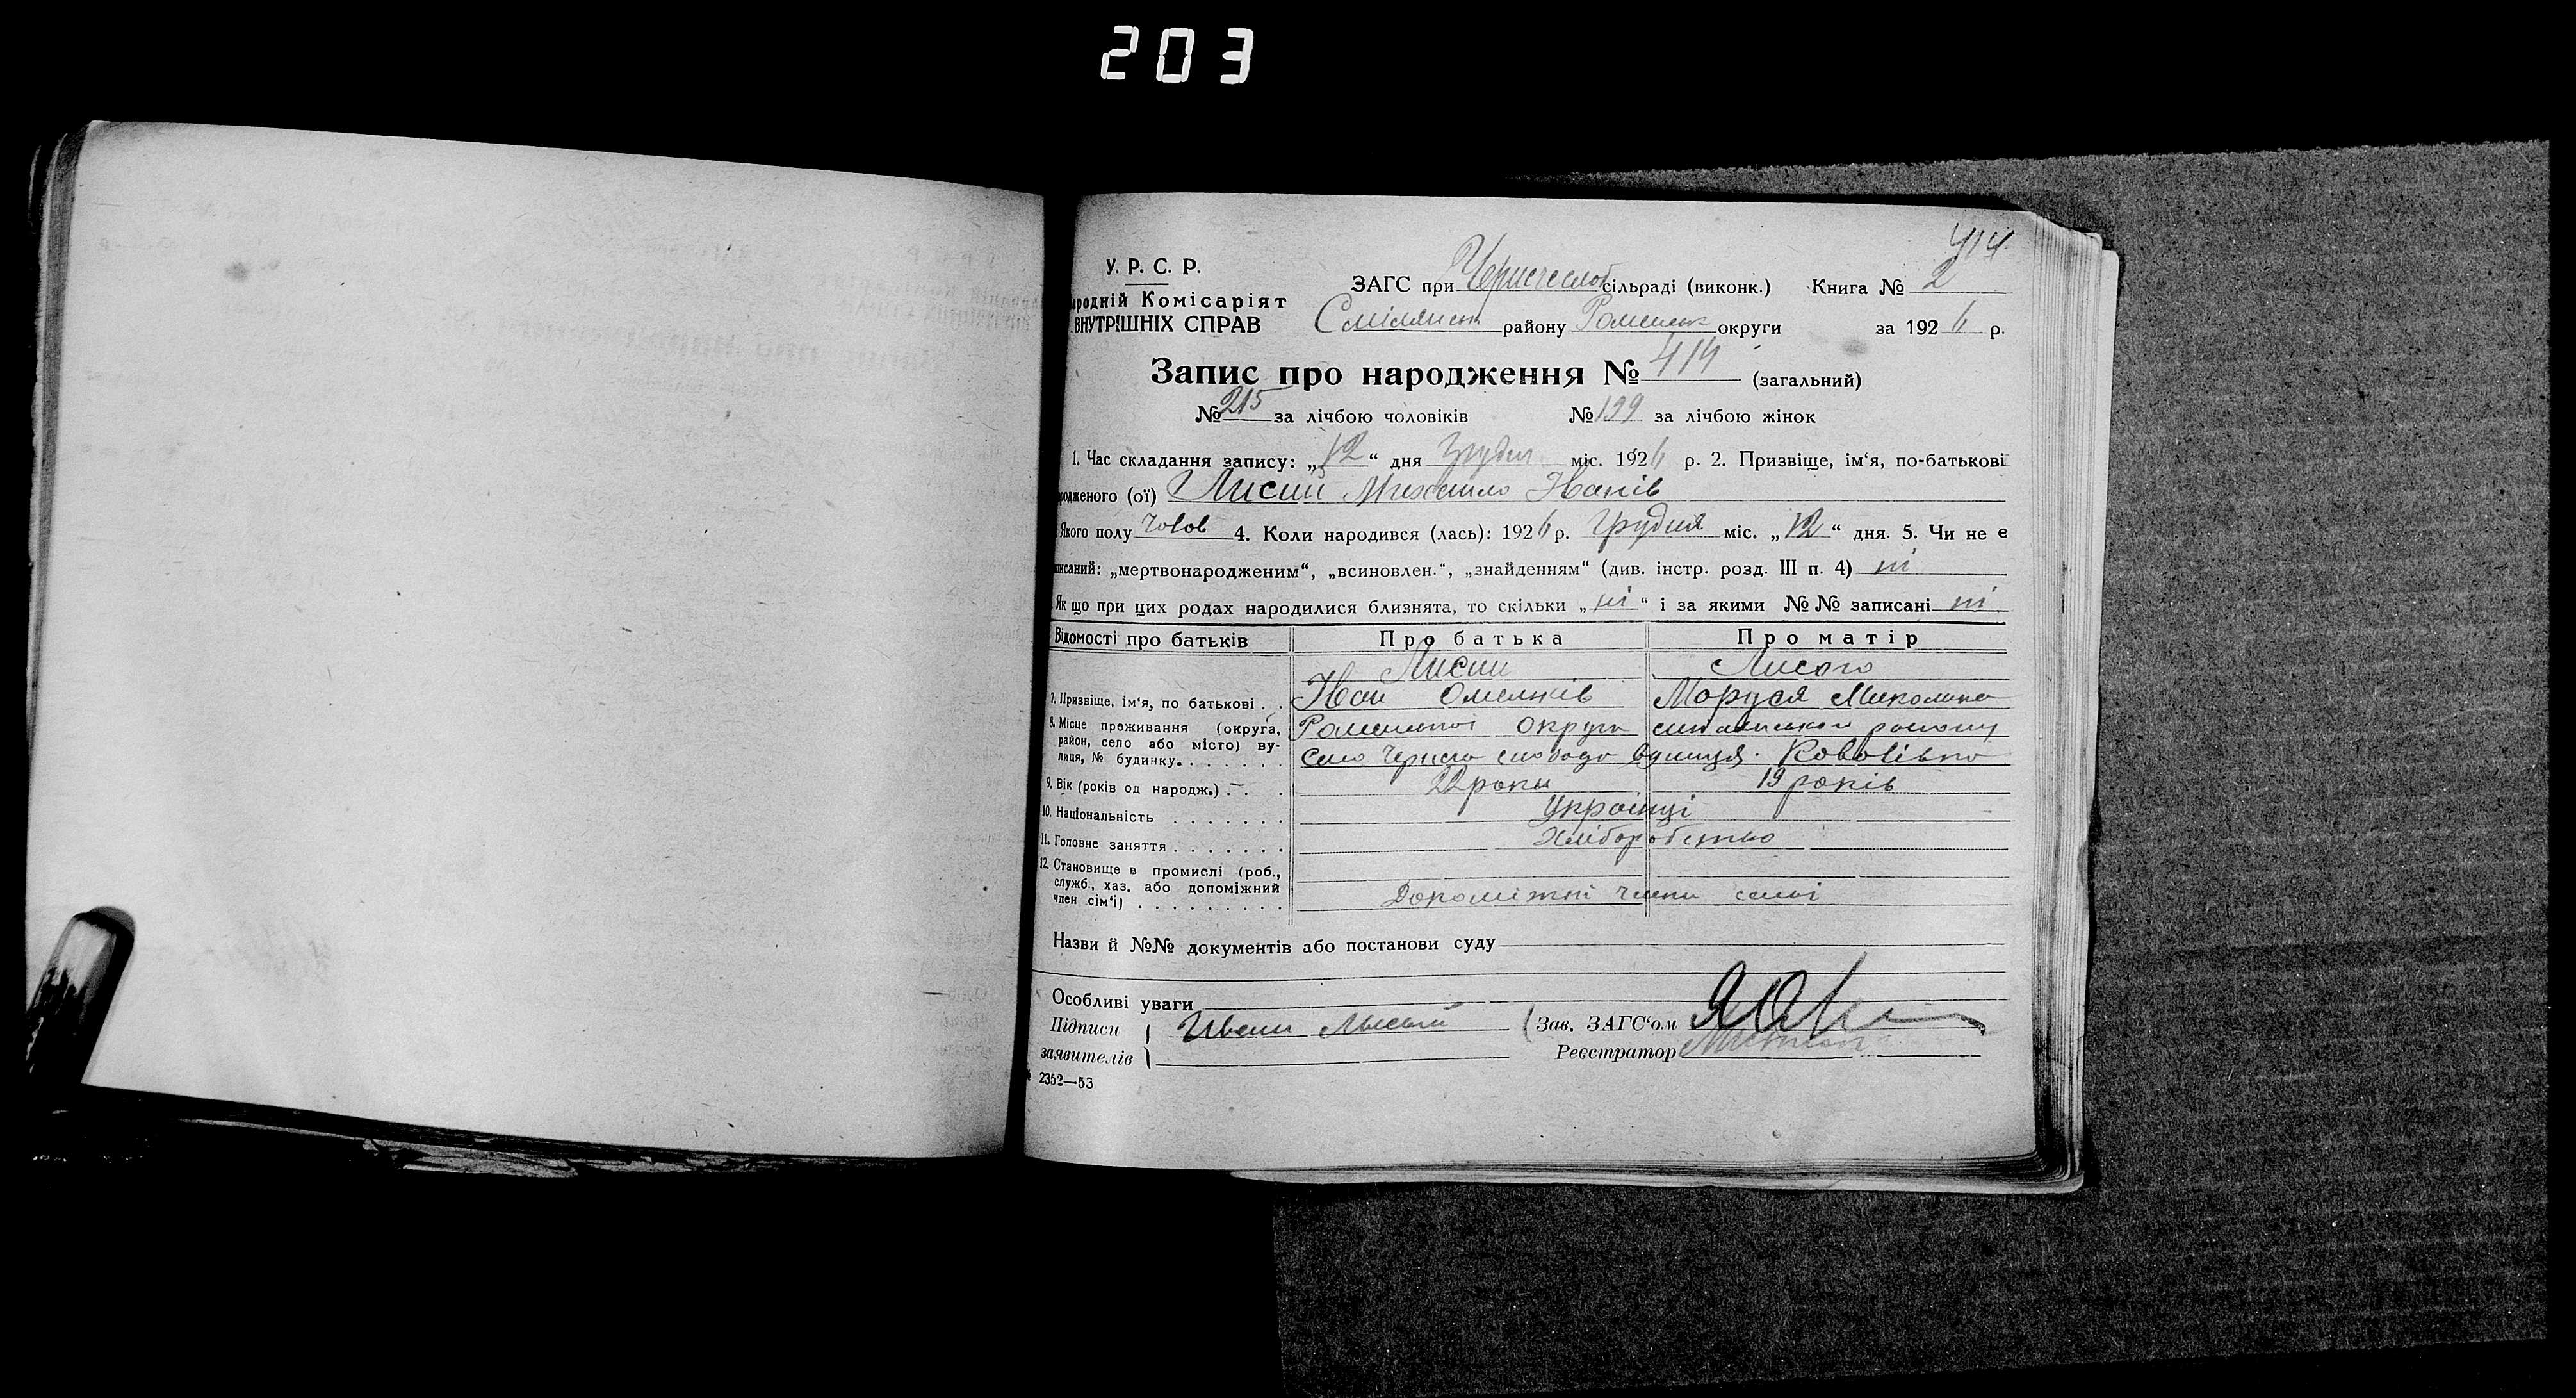 203
414
У. Р. С. Р.
ЗАГС при Чернечеслоб сільраді (виконк.) Книга № 2
ародній Комісаріят
ВНУТРІШНІХ СПРАВ
Смілянськ району Роменськ округи за 1926 р.
Запис про народження № 414 (загальний)
№ 215 за лічбою чоловіків № 199 за лічбою жінок
1. Час складання запису: „12“ дня Грудня міс. 1926 р. 2. Призвіще, ім‘я, по-батькові
родженого (ої) Лисий Михайло Іванів
Якого полу чолов 4. Коли народився (лась): 1926 р. Грудня міс. „12“ дня. 5. Чи не є
писаний: „мертвонародженим“, „всиновлен.“, „знайденням“ (див. інстр. розд. III п. 4) ні
Як що при цих родах народилися близнята, то скільки „ні“ і за якими №№ записані ні
Відомості про батьків Про батька Про матір
Лисий Лисого
7. Призвіще, ім‘я, по батькові . . Іван Омельків Моруся Миколаєва
8. Місце проживання (округа, район, село або місто) вулиця, № будинку. . . . . . . Роменської округи смілянського району
село Чернеча слобода вулиця Ковалівка
9. Вік (років од народж.) . . . 22 роки 19 років
10. Національність . . . . . . . Українці
11. Головне заняття . . . . . . . Хліборобство
12. Становище в промислі (роб.,
служб., хаз. або допоміжний
член сім‘ї) . . . . . . . . . Допоміжні члени семї
Назви й №№ документів або постанови суду
Особливі уваги
Підписи Иван Лысый Зав. ЗАГС‘ом
заявителів Реєстратор
2352—53